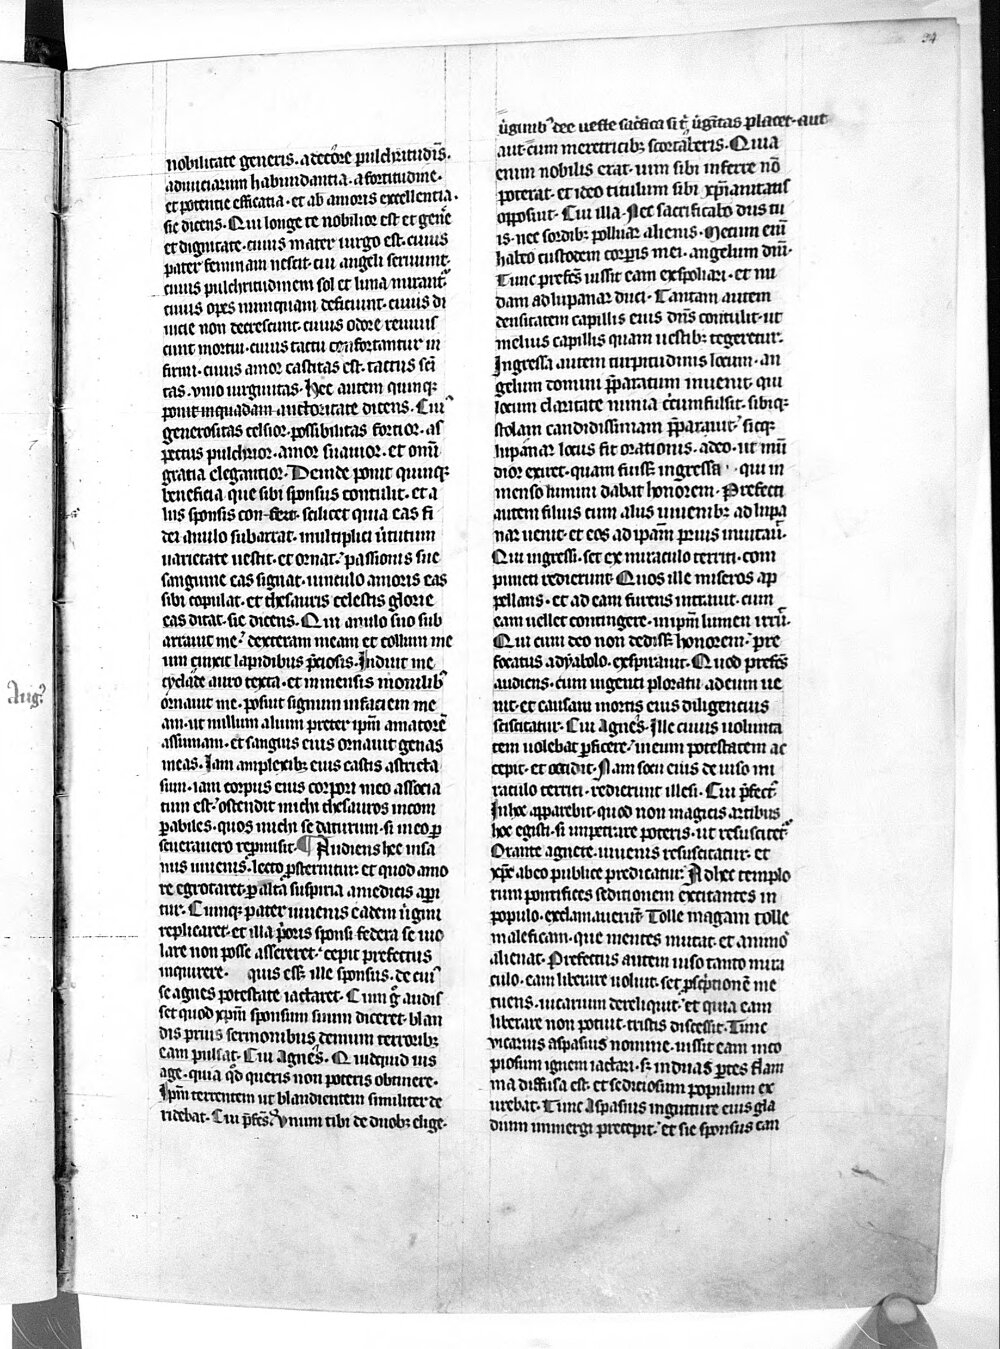 34
nobilitate generis. a decore pulchritudīs.
a diuiciarum habundantia. a fortitudine.
et potentie efficatia. et ab amoris excellentia.
sic dicens. Qui longe te nobilior est et gen̄e
et dignitate. cuius mater uirgo est. cuius
pater feminam nescit. cui angeli seruiunt.
cuius pulchritudinem sol et luna mirant᷑.
cuius opes nunquam deficiunt. cuius di
uicie non decrescunt. cuius odore reuiuis
cunt mortui. cuius tactu confortantur in
firmi. cuius amor castitas est. tactus sc̄i
tas. vnio uirginitas. Hec autem quinqꝫ
ponit in quadam auctoritate dicens. Cuiꝰ
generositas celsior. possibilitas fortior. as
pectus pulchrior. amor suauior. et om̄i
gratia elegantior. Deinde ponit quinqꝫ
beneficia que sibi sponsus contulit. et a
liis sponsis confert. scilicet quia eas fi
dei anulo subarrat. multiplici u̇tutum
uarietate uestit. et ornat. passionis sue
sanguine eas signat. uinculo amoris eas
sibi copulat. et thesauris celestis glorie
eas ditat. sic dicens. Qui anulo suo sub
arrauit me. dexteram meam et collum me
um cinxit lapidibus p̄ciosis. Induit me
cyclade auro texta. et inmensis monilibꝰ
ornauit me. posuit signum in faciem me
am. ut nullum alium preter ip̄m amatorē
assumam. et sanguis eius ornauit genas
meas. Iam amplexibꝫ eius castis astricta
sum. iam corpus eius corpori meo associa
tum est. ostendit michi thesauros incom
ꝑabiles. quos michi se daturum. si in eo ꝑ
seuerauero repmisit. ¶ Audiens hec insa
nus iuuenis. lecto ꝓsternitur. et quod amo
re egrotaret. ꝑ alta suspiria a medicis apꝑi
tur. Cumqꝫ pater iuuenis eadem u̇gini
replicaret. et illa p̄oris sponsi federa se uio
lare non posse assereret. cepit prefectus
inquirere. quis ess̄ ille sponsus. de cuiꝰ
se agnes potestate iactaret. Cum ḡ audis
set quod xp̄m sponsum suum diceret. blan
dis prius sermonibus demum terroribꝫ
eam pulsat. Cui Agnes. Quidquid uis
age. quia qd̄ queris non poteris obtinere.
Ip̄m terrentem ut blandientem similiter de
ridebat. Cui p̄fcs̄. Vnum tibi de duobꝫ elige.
u̇ginibꝰ dee ueste sac̄fica si t̄ u̇gītas placet. aut
aut cum meretricibꝫ scortaberis. Quia
enim nobilis erat. uim sibi inferre nō
poterat. et ideo titulum sibi xp̄ianitatis
opposuit. Cui illa. Nec sacrificabo diis tu
is. nec sordibꝫ polluar alienis. Mecum eni̅
habeo custodem corporis mei. angelum dn̄i.
Tunc prefcs̄ iussit eam exspoliari. et nu
dam ad lupanar duci. Tantam autem
densitatem capillis eius dn̄s contulit. ut
melius capillis quam uestibꝫ tegeretur.
Ingressa autem turpitudinis locum. an
gelum domini p̄paratum inuenit. qui
locum claritate nimia c̄cumfulsit. sibiqꝫ
stolam candidissimam p̄parauit. sicqꝫ
lupanar locus fit orationis. adeo. ut mū
dior exiret. quam fuiss̄ ingressa. qui in
menso lumini dabat honorem. Prefecti
autem filius cum aliis iuuenibꝫ ad lupa
nar uenit. et eos ad ipam̄ prius inuitau̅.
Qui ingressi. set ex miraculo territi. com
puncti redierunt. Quos ille miseros ap
pellans. et ad eam furens intrauit. cum
eam uellet contingere. in ip̄m lumen irru̅.
Qui cum deo non dediss̄ honorem. pre
focatus a dyabolo. exspirauit. Quod prefcs̄
audiens. cum ingenti ploratu ad eum ue
nit. et causam mortis eius diligencius
sciscitatur. Cui Agnes. Ille cuius uolunta
tem uolebat ꝑficere. in eum potestatem ac
cepit. et occidit. Nam socii eius de uiso mi
raculo territi. redierunt illesi. Cui p̄fect̄.
In hoc apparebit. quod non magicis artibus
hoc egisti. si impetrare poteris. ut resuscitet᷑.
Orante agnete. iuuenis resuscitatur. et
xp̄c ab eo publice predicatur. Ad hec templo
rum pontifices seditionem excitantes in
populo. exclamauerūt. Tolle magam tolle
maleficam. que mentes mutat. et animoˢ
alienat. Prefectus autem uiso tanto mira
culo. eam liberare uoluit. set ꝓscp̄tionē me
tuens. uicarium dereliquit. et quia eam
liberare non potuit. tristis discessit. Tunc
vicarius aspasius nomine. iussit eam in co
piosum ignem iactari. sꝫ in duas ꝑtes flam
ma diffusa est. et seditiosum populum ex
urebat. Tunc Aspasius in gutture eius gla
dium immergi precepit. et sic sponsus can
Aug.